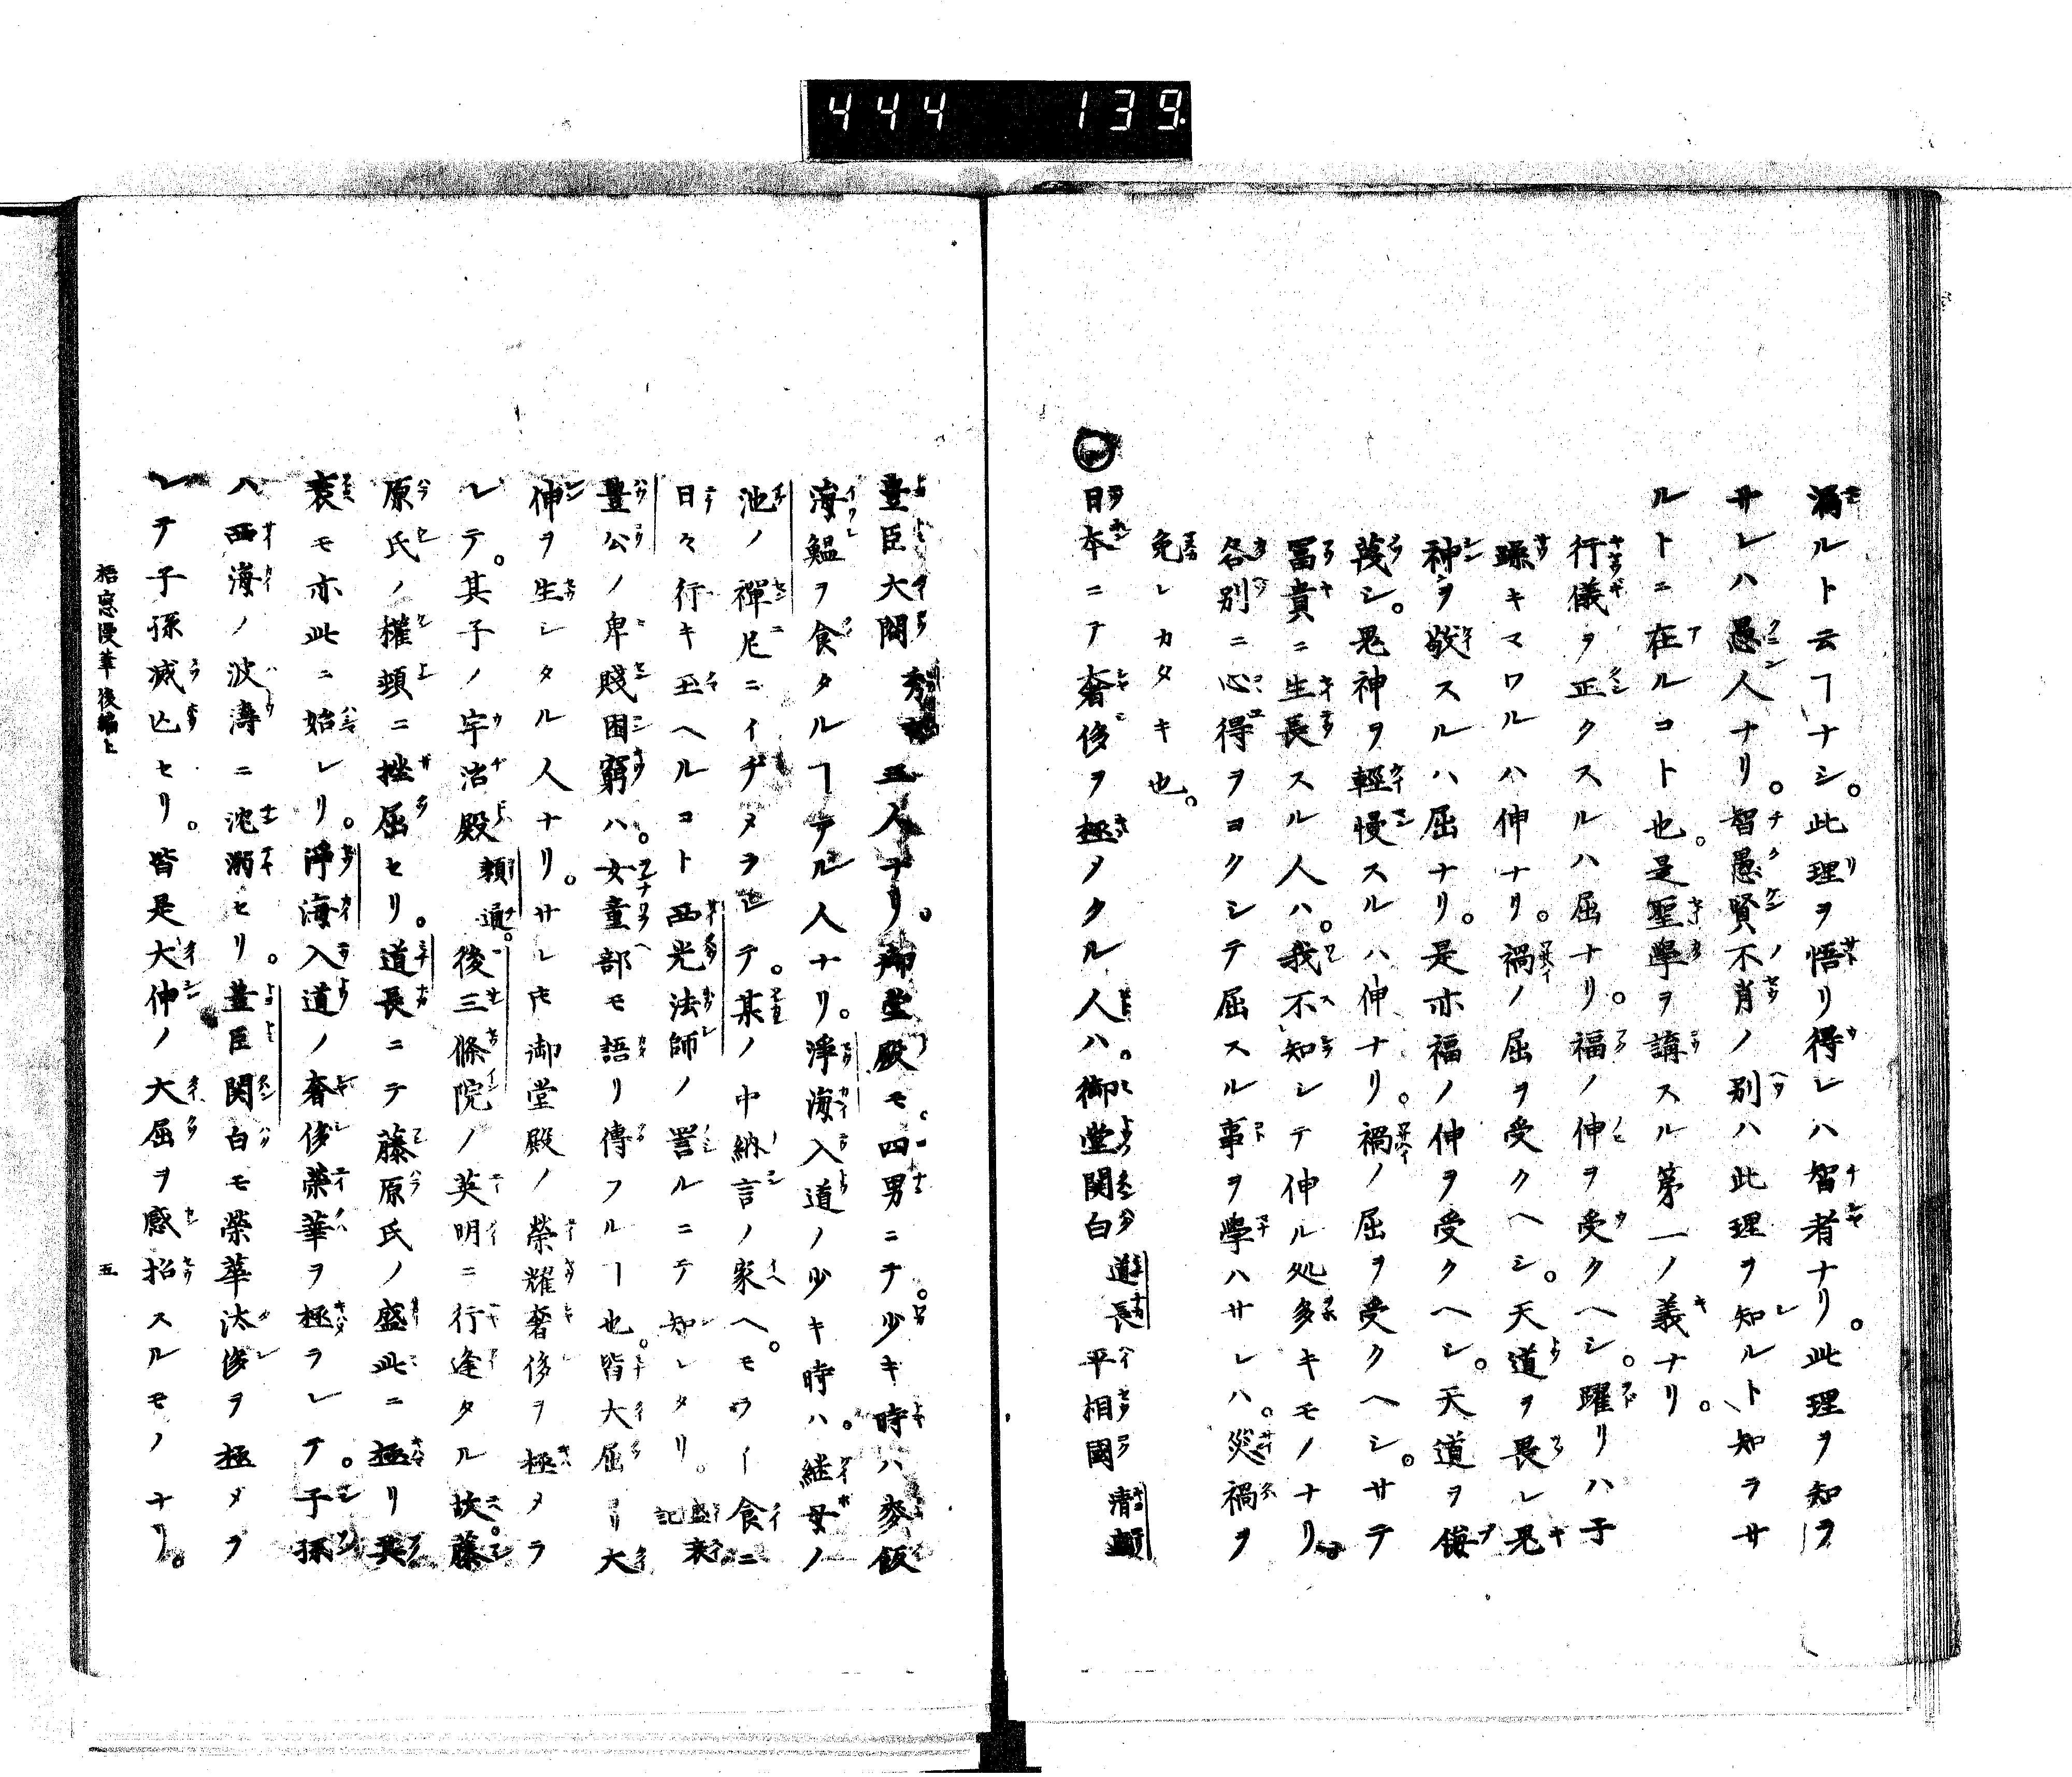 444 139
漏ルト云ヿナシ。此理ヲ悟リ得レハ智者ナリ。此理ヲ知ラ
サレハ愚人ナリ。智愚賢不肖ノ別ハ此理ヲ知ルト、知ラサ
ルトニ在ルコト也。是聖學ヲ講スル第一ノ義ナリ。
行儀ヲ正クスルハ屈ナリ。福ノ伸ヲ受クヘシ。躍リハ子
躁キマワルハ伸ナリ。禍ノ屈ヲ受クヘシ。天道ヲ畏レ鬼
神ヲ敬スルハ屈ナリ。是亦福ノ伸ヲ受クヘシ。天道ヲ侮
蔑シ。鬼神ヲ輕慢スルハ伸ナリ。禍ノ屈ヲ受クヘシ。サテ
冨貴ニ生長スル人ハ。我不知シテ伸ル処多キモノナリ。
各別ニ心得ヲヨクシテ屈スル事ヲ學ハサレハ。災禍ヲ
免レカタキ也。
日本ニテ奢侈ヲ極メタル人ハ。御堂関白 道長 平相國 清盛
豊臣大閤 秀吉 三人ナリ。御堂殿モ。四男ニテ。少キ時ハ麥飯
海鰮ヲ食タルヿテル人ナリ。淨海入道ノ少キ時ハ。継母ノ
池ノ禪尼ニイヂメヲ逃テ。某ノ中納言ノ家ヘ。モウー食ニ
日々行キ玉ヘルコト西光法師ノ詈ルニテ知レタリ。盛衰記
豊公ノ卑賤困窮ハ。女童部モ語リ傳フルヿ也。皆大屈ヨリ大
伸ヲ生シタル人ナリ。サレ𪜈御堂殿ノ榮耀奢侈ヲ極メラ
レテ。其子ノ宇治殿 頼通。後三條院ノ英明ニ行逢タル故。藤
原氏ノ權頓ニ挫屈セリ。道長ニテ藤原氏ノ盛此ニ極リ其
衰モ亦此ニ始レリ。淨海入道ノ奢侈榮華ヲ極ラレテ。子孫
ハ西海ノ波濤ニ沈溺セリ。豊臣関白モ榮華汰侈ヲ極メラ
レテ子孫滅亾セリ。皆是大伸ノ大屈ヲ感招スルモノナリ。
梧窓漫筆後編上 五